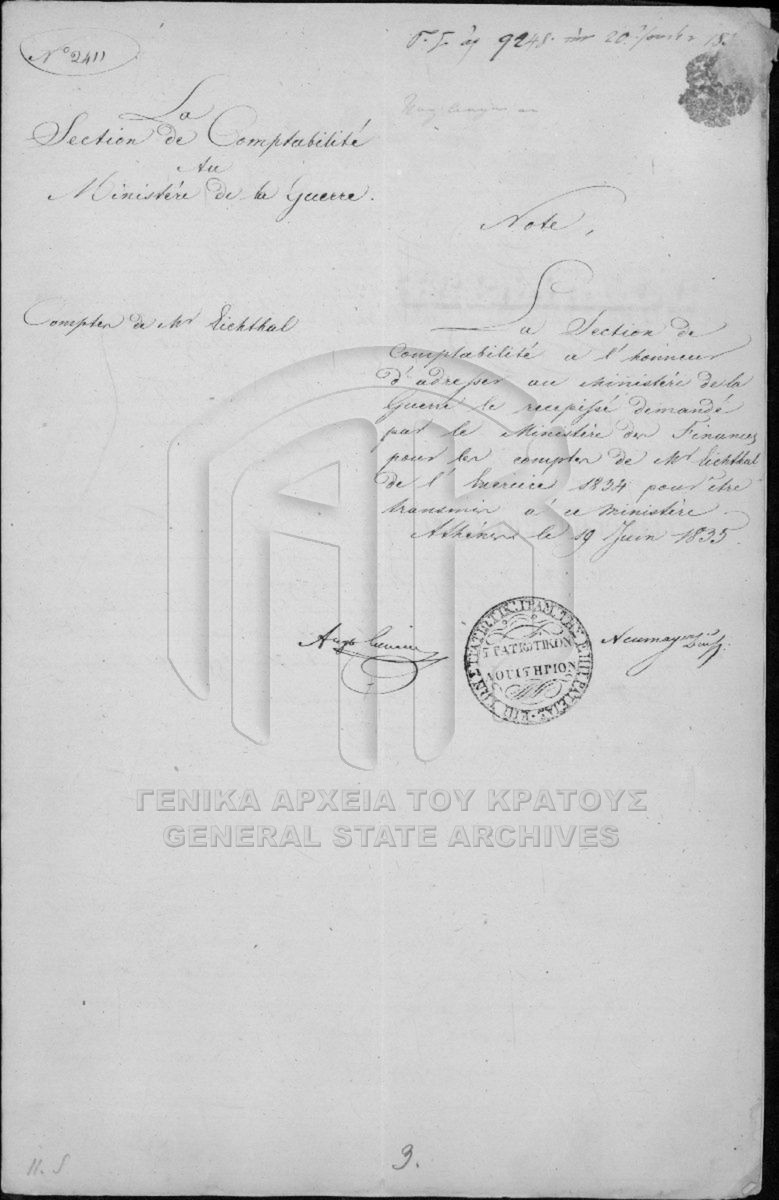 No 2411
9248
20
La
Section de Comptabilité
Au
Ministère de la Guerre.
Note,
Comptes de Mr Eichthal
La Section de
Comptabilité a l'honneur
d'adresser au Ministère de la
Guerre le recepissé demandé
par le Ministère des Finances
pour les comptes de Mr Eichthal
de l'Exercice 1834 pour être
transmis à ce ministère
Athènes le 19 Juin 1835.
ΓΕΝΙΚΑ ΑΡΧΕΙΑ ΤΟΥ ΚΡΑΤΟΥΣ
GENERAL STATE ARCHIVES
3.